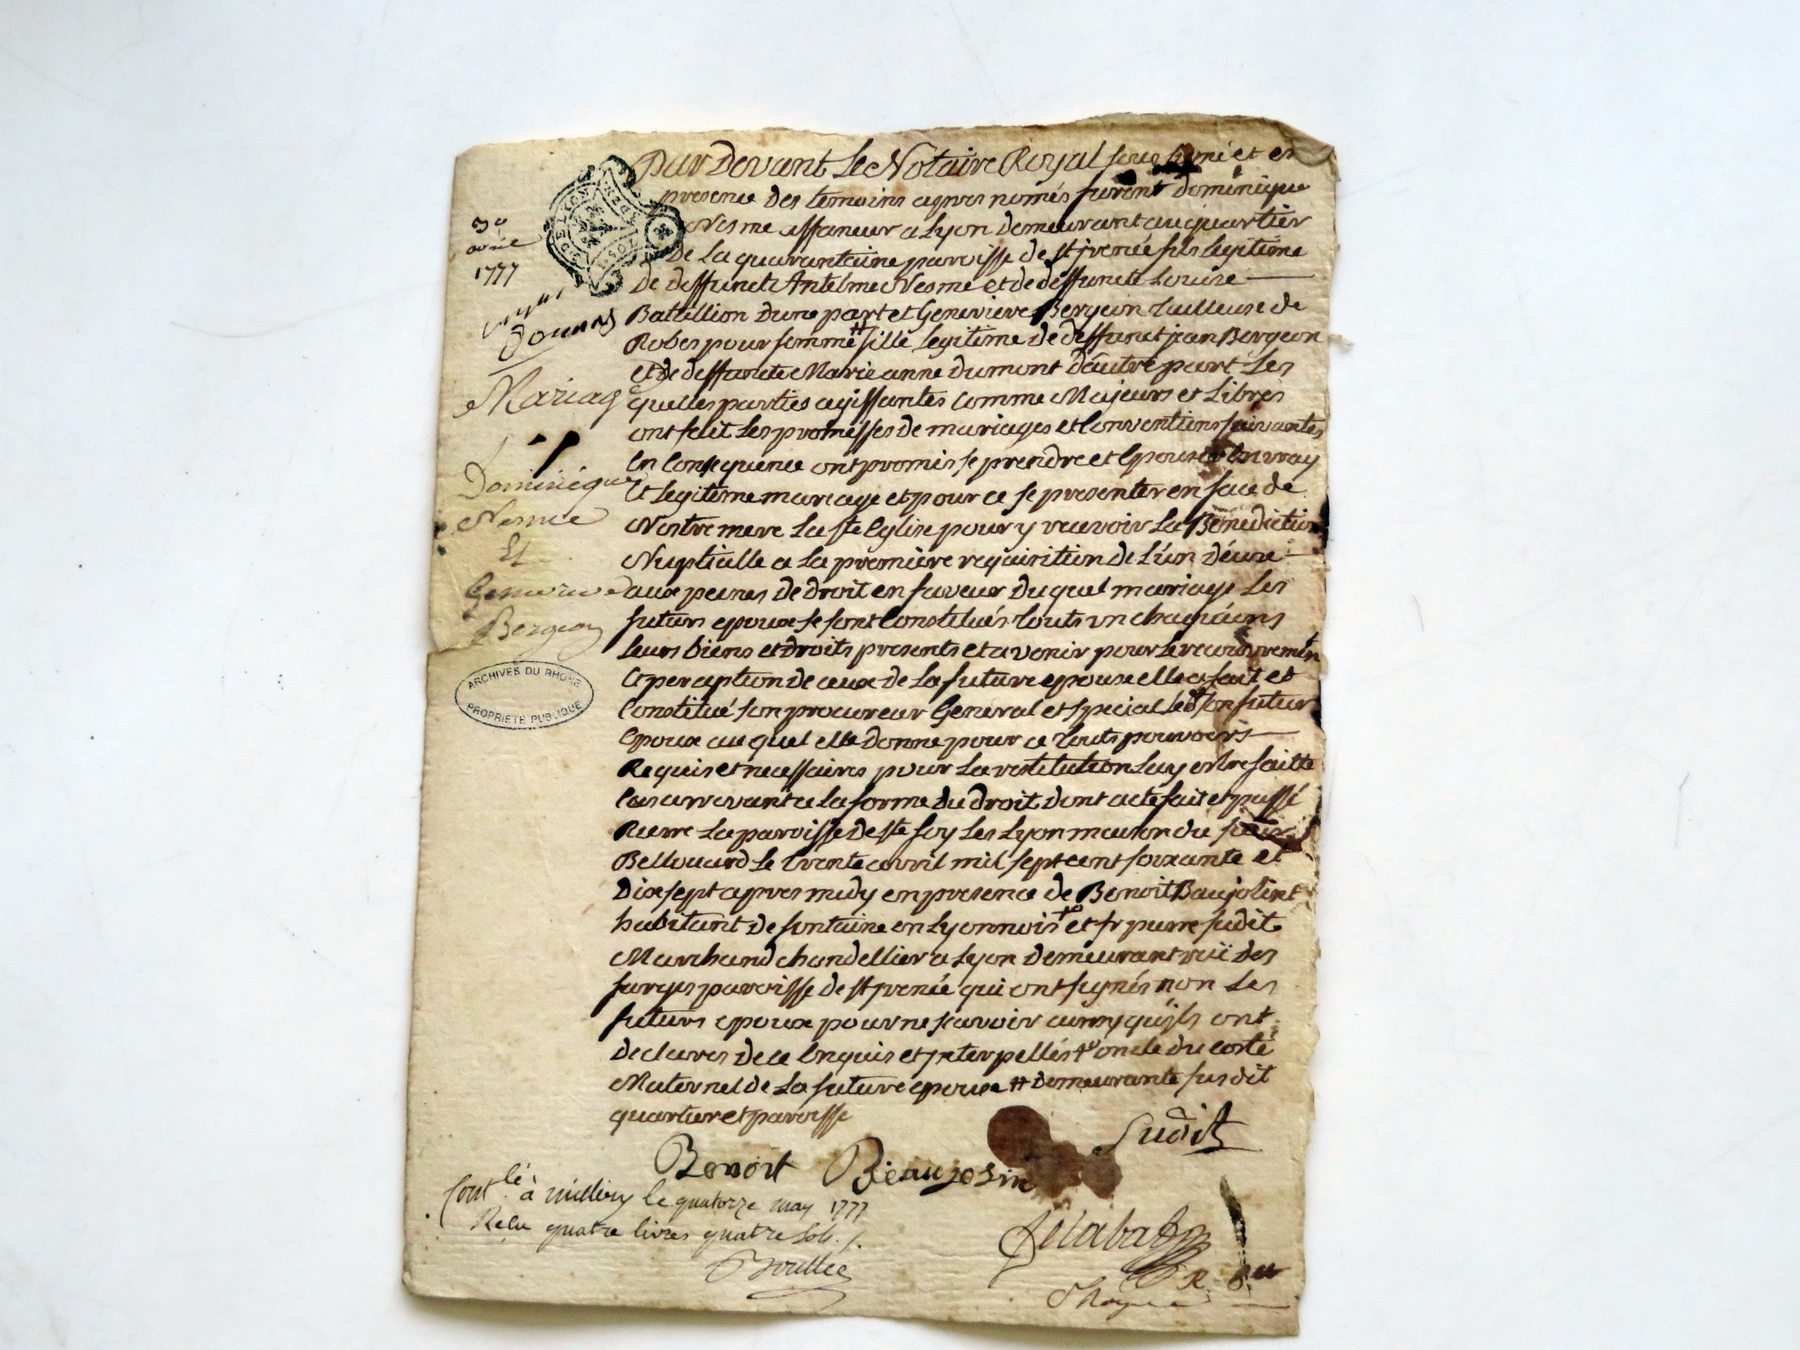 Par Devant Le Notaire Royal sous signé et en
presence des temoins apres només furent Dominique
Nesme affaneur a Lyon demeurant au quartier
De La quarantaine paroisse de st jrenée fils legitime
De deffunct Antelme Nesme et de deffuncte Louise
Batallion Dune part et Genevieve Bergeon tailleuse de
Robes pour femme # fille legitime de deffunct jean Bergeon
et de deffuncte Marie anne Dumont D'autre part Les
quelles parties agissantes Comme Majeurs et Libres
ont fait Les promesses de mariages et Conventions suivantes
En Consequence ont promis se prendre et Epouser En vray
Et Legitime mariage et pour ce se presenter en face de
Nostre mere La ste Eglise pour y recevoir La Benediction
Nuptialle a La premiere requisition de L'un D'eux
aux peines de droit en faveur Du quel mariage Les
futurs epoux se sont Constitués touts un chaquuns
Leurs biens et droits presents et avenir pour Le recouvremen
Et perception de ceux de La future epouse elle a fait et
Constitué son procureur General et special Led son futur
Epoux au quel elle donne pour ce touts pouvoirs
Requis et necessaires pour La restitution Luy estre faitte
Cas arrivant a la forme Du droit dont acte fait et passé
Riere La paroisse de ste foy Les Lyon maison du sieur
Bellouard Le trente avril mil sept cent soixante et
Dix sept apres midy en presence de Benoit Baujolint
habitant de fontaine en Lyonnois et sr pierre judit
Marchand chandellier a Lyon demeurant ruë des
farges paroisse de st jrenée qui ont signés non Les
futurs epoux pour ne scavoir ainsy qu'jls ont
declarés de ce Enquis et jnterpellés + oncle du costé
Maternel de La future epouse # demeurante susdit
quartier et paroisse
3o
avril
1777
Mariage
Dominique
Nesme
Et
Genevieve
Bergeon
ARCHIVES DU RHONE
PROPRIETE PUBLIQUE
Judit
Benoit Beaujolin
Contlé à millery le quatorze may 1777
Reçu quatre livres quatre sols ./.
Boullee